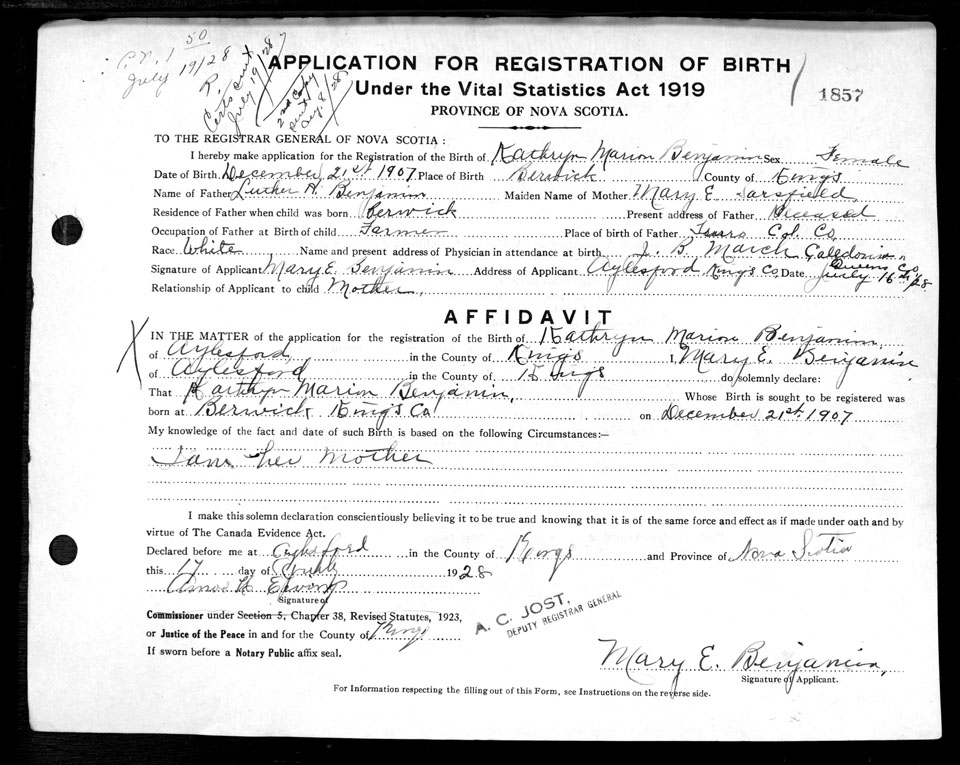 Pr. 1 50
July 19/28
R.
Certs sent
July 19/28
2nd Copy
sent
Aug. 8/28
APPLICATION FOR REGISTRATION OF BIRTH
Under the Vital Statistics Act 1919
PROVINCE OF NOVA SCOTIA.
1857
TO THE REGISTRAR GENERAL OF NOVA SCOTIA:
I hereby make application for the Registration of the Birth of Kathryn Marion Benjamin Sex Female
Date of Birth December 21st 1907 Place of Birth Berwick County of Kings
Name of Father Luther H. Benjamin Maiden Name of Mother Mary E. Sarsfield
Residence of Father when child was born Berwick Present address of Father Deceased
Occupation of Father at Birth of child Farmer Place of birth of Father Truro Col. Co.
Race White Name and present address of Physician in attendance at birth J. B. March Caledonia
Queens Co
Signature of Applicant Mary E. Benjamin Address of Applicant Aylesford Kings Co, Date July 16th/28
Relationship of Applicant to child Mother,
AFFIDAVIT
X
IN THE MATTER of the application for the registration of the Birth of Kathryn Marion Benjamin,
of Aylesford in the County of Kings I, Mary E. Benjamin
of Aylesford in the County of Kings do solemnly declare:
That Kathryn Marion Benjamin, Whose Birth is sought to be registered was
born at Berwick Kings Co on December 21st. 1907
My knowledge of the fact and date of such Birth is based on the following Circumstances:—
I am her Mother
I make this solemn declaration conscientiously believing it to be true and knowing that it is of the same force and effect as if made under oath and by
virtue of The Canada Evidence Act.
Declared before me at Aylesford in the County of Kings and Province of Nova Scotia
this 17 day of July 1928
Amos H.
Signature of
Commissioner under Section 5, Chapter 38, Revised Statutes, 1923,
or Justice of the Peace in and for the County of Kings
If sworn before a Notary Public affix seal.
A. C. JOST,
DEPUTY REGISTRAR GENERAL
Mary E. Benjamin,
Signature of Applicant.
For Information respecting the filling out of this Form, see Instructions on the reverse side.